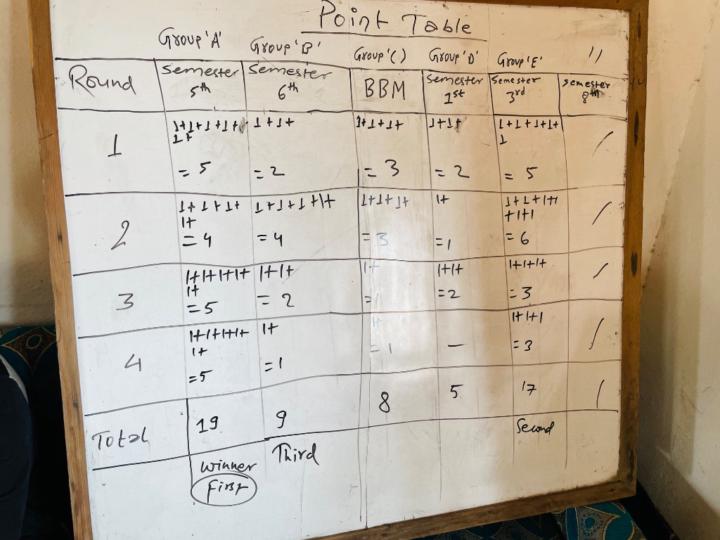 Point Table
Group 'A' Group 'B' Group 'C' Group 'D' Group 'E' //
Round Semester 5th Semester 6th BBM Semester 1st Semester 3rd Semester 8th
1 1+1+1+1+ 1+1+ 1+1+1+ 1+1+ 1+1+1+1+
1+ 1
= 5 = 2 = 3 = 2 = 5 /
2 1+1+1+ 1+1+1+1+ 1+1+1+ 1+ 1+1+1+1
1+ +1+1
= 4 = 4 = 3 = 1 = 6 /
3 1+1+1+1+ 1+1+ 1+ 1+1+ 1+1+1+
1+
= 5 = 2 = 1 = 2 = 3 /
4 1+1+1+1+ 1+ 1+ 1+1+1
1+
= 5 = 1 = 1 — = 3 /
Total 19 9 8 5 17 /
Winner Third Second
First